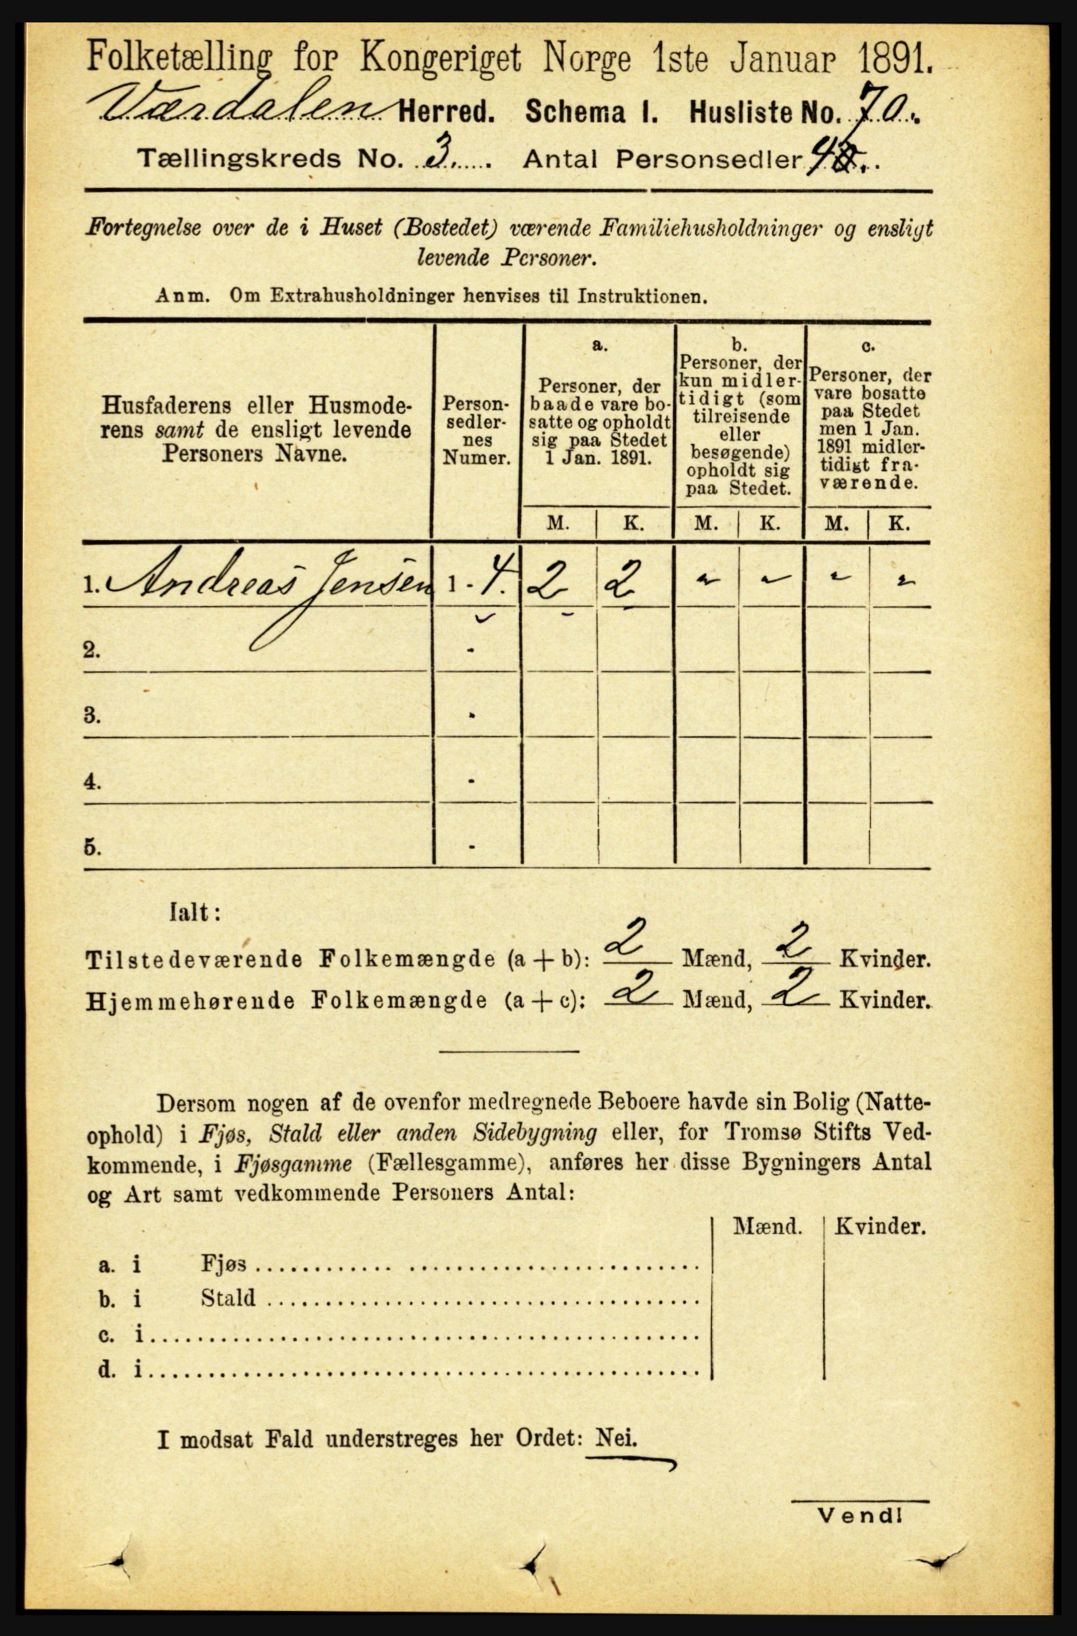 Folketælling for Kongeriget Norge 1ste Januar 1891.
Værdalen Herred. Schema I. Husliste No. 70.
Tællingskreds No. 3. Antal Personsedler 4.
Fortegnelse over de i Huset (Bostedet) værende Familiehusholdninger og ensligt
levende Personer.
Anm. Om Extrahusholdninger henvises til Instruktionen.
Husfaderens eller Husmode-
rens samt de ensligt levende
Personers Navne.
Person-
sedler-
nes
Numer.
a.
Personer, der
baade vare bo-
satte og opholdt
sig paa Stedet
1 Jan. 1891.
b.
Personer, der
kun midler-
tidigt (som
tilreisende
eller
besøgende)
opholdt sig
paa Stedet.
c.
Personer, der
vare bosatte
paa Stedet
men 1 Jan.
1891 midler-
tidigt fra-
værende.
M. K. M. K. M. K.
1. Andreas Jensen 1 - 4. 2 2 " " " "
2. -
3. -
4. -
5. -
Ialt:
Tilstedeværende Folkemængde (a + b): 2 Mænd, 2 Kvinder.
Hjemmehørende Folkemængde (a + c): 2 Mænd, 2 Kvinder.
Dersom nogen af de ovenfor medregnede Beboere havde sin Bolig (Natte-
ophold) i Fjøs, Stald eller anden Sidebygning eller, for Tromsø Stifts Ved-
kommende, i Fjøsgamme (Fællesgamme), anføres her disse Bygningers Antal
og Art samt vedkommende Personers Antal:
Mænd. Kvinder.
a. i Fjøs
b. i Stald
c. i
d. i
I modsat Fald understreges her Ordet: Nei.
Vend!